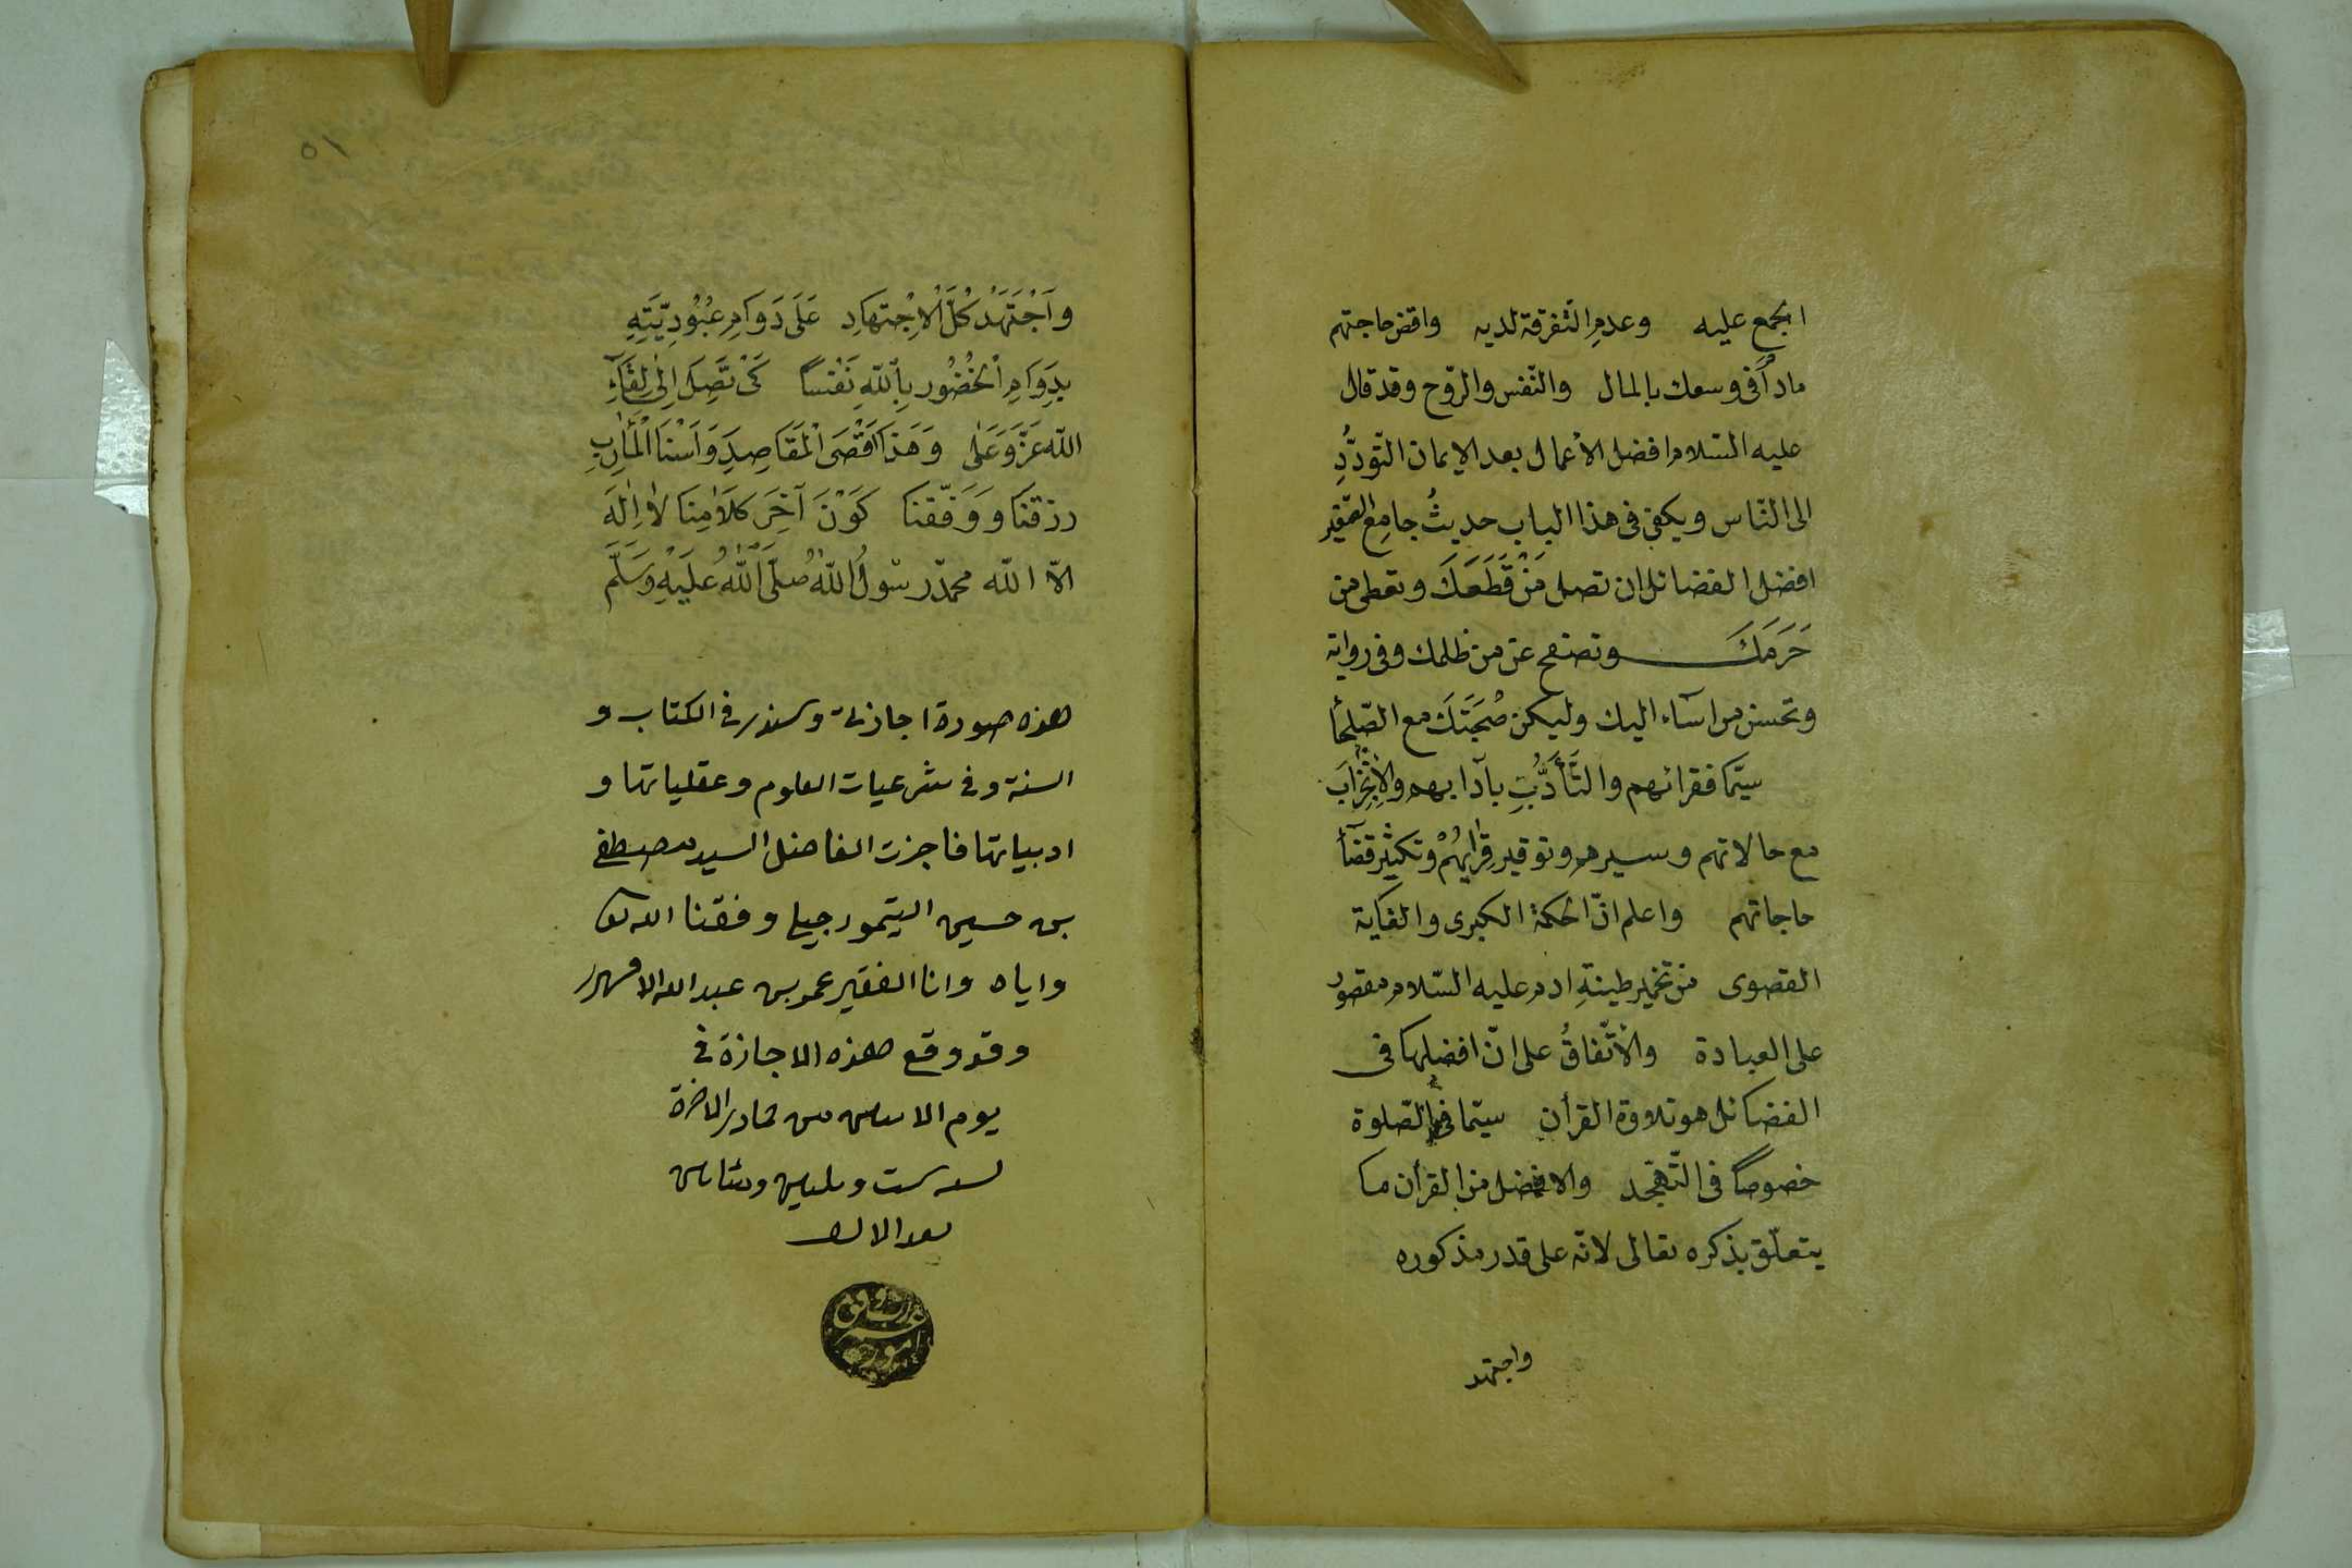 الجمع عليه وعدمِ التفرقة لديه واقض حاجتهم
مادأَ فى وسعك بالمال والنّفس والرّوح وقد قال
عليه السّلام افضل الأعمال بعد الإيمان التّودُّدِ
الى النّاس ويكفى فى هذا الباب حديثُ جامِع الصّغير
افضل الفضائل ان تصل مَنْ قَطَعَكَ وتعطى من
حَرَمَكَ وتصفح عن من ظلمك وفى رواية
وتحسن من اسآء اليك وليكن صُحْبَتَكَ مع الصّلحأ
سيّما فقرائهم والتَّأَدُّبِ بآدابهم والإنْجِرَابَ
مع حالاتهم وسيرهم وتوقير قِرٰايهُمْ وتكثير قضآء
حاجاتهم واعلم انّ الحكمة الكبرى والغاية
القصوى من تخمير طينةِ ادم عليه السّلام مقصور
على العبادة والأتّفاقُ على انّ افضلها فى
الفضائل هو تلاوة القرأن سيّما فى الصّلوة
خصوصاً فى التّهجّد والافضل من القرأن ما
يتعلّق بذكره تعالى لانّه على قدر مذكوره
واجتهد
٥١
وَاَجْتَهَدْ كُلَّ الْاِجْتهَادِ عَلَى دَوَامِ عُبُوُدِيّتِهِ
بِدَوَامِ الْخُضُور بِاللّهِ نَفْسًا كَىْ تَصِلَ اِلىٰ لِقَآءِ
اللّه عَزَّ وَعَلٰى وَهَذَا اَقْصَى الْمَقَاصِدِ وَاَسْنَا الْمَأٰرِبِ
رزقنَا وَوَفّقنَا كَوْنَ آخِرَ كلَامِنَا لاٰ اِلٰهَ
الاّ اللّه محمدٌ رسُولُ اللّٰهِ صَلَّى اللّٰهُ عليَهِ وَسَلَّم
هذه صورة اجازتى وسندى فى الكتاب و
السنة وفى شرعيات العلوم وعقلياتها و
ادبياتها فاجزت الفاضل السيد مصطفى
بن حسين اليتمورجيلى وفقنا الله تعالى
واياه وانا الفقير عمر بن عبد الله الاقشهرى
وقد وقع هذه الاجازة فى
يوم الاثنين من جمادى الاخرة
لسنه ست وثلثين ومئاتين
بعد الالف